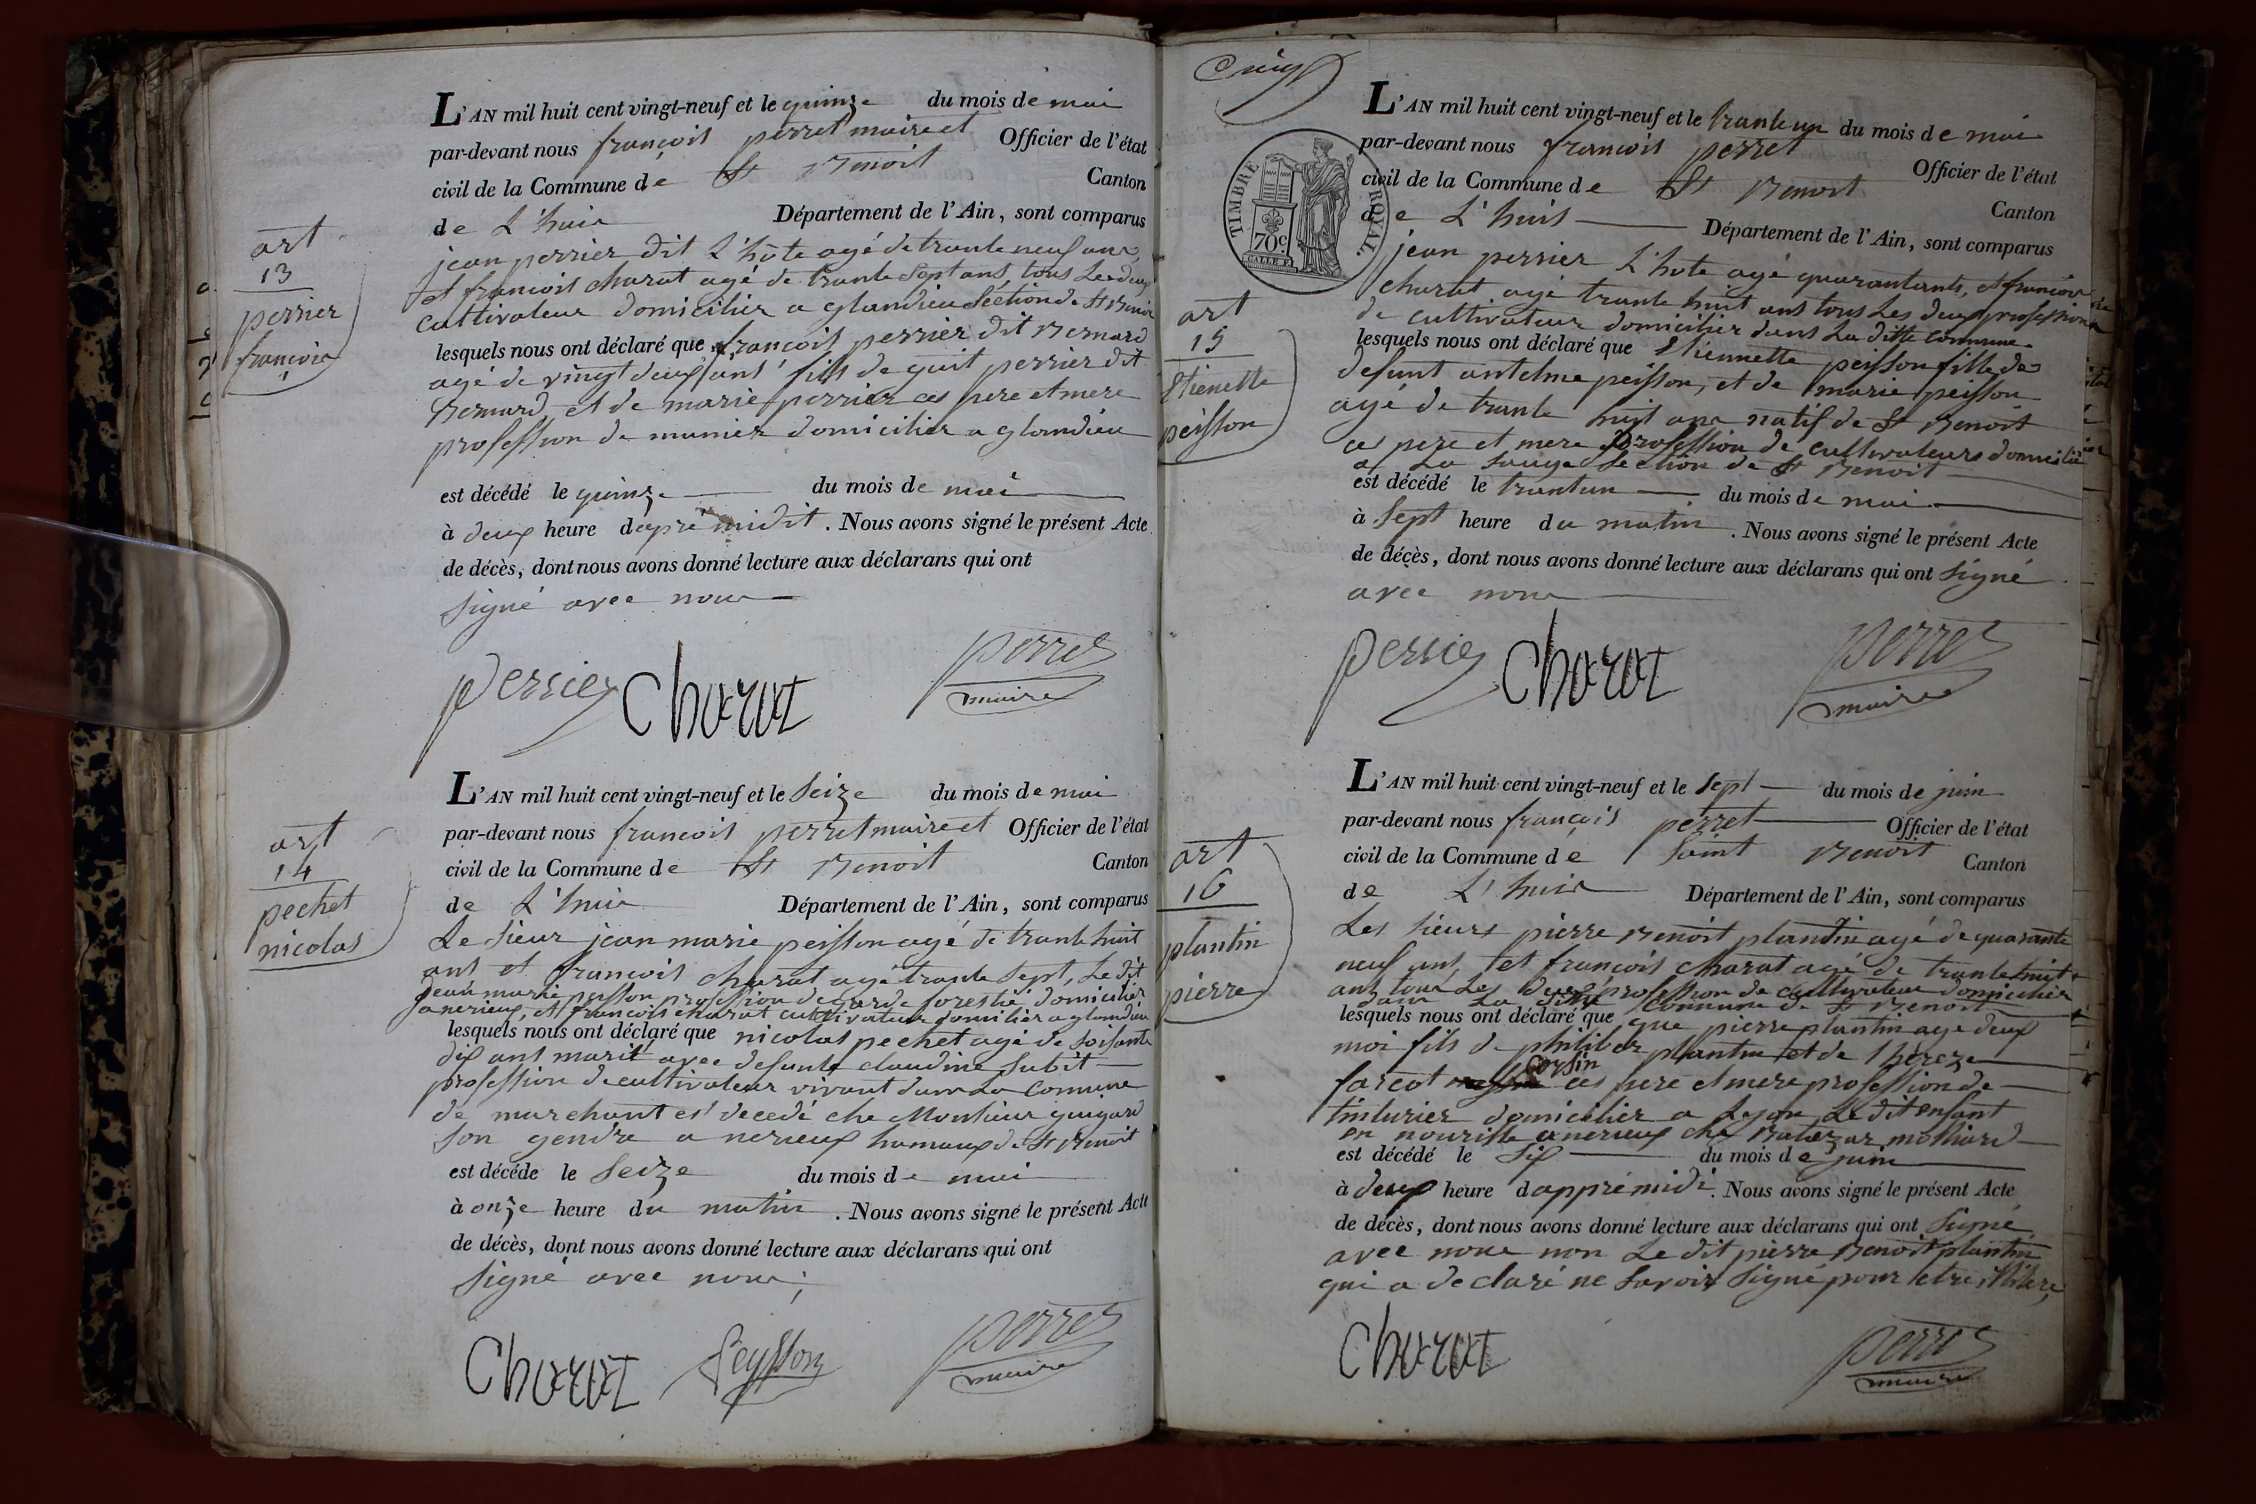 art
13
perrier
françois
L'AN mil huit cent vingt-neuf et le quinze du mois de mai
par-devant nous françois perret maire et Officier de l'état
civil de la Commune de St Benoit Canton
de L'huis Département de l'Ain, sont comparus
jean perrier dit L'hôte agé de trante neuf ans,
et françois charat agé de trante Sept ans, tous Les deux
cultivateur domicilier a glandieu Séction de St Benoit
lesquels nous ont déclaré que françois perrier dit Bernard
agé de vingt deux ans fils de perrier dit
Bernard et de marie perrier ces pere et mere
profession de munier domicilier a glandieu
est décédé le quinze du mois de mai
à deux heure daprè midit. Nous avons signé le présent Acte
de décès, dont nous avons donné lecture aux déclarans qui ont
signé avec nous
perrier Charat perret
maire
art
14
pechet
nicolas
L'AN mil huit cent vingt-neuf et le Seize du mois de mai
par-devant nous françois perret maire et Officier de l'état
civil de la Commune de St Benoit Canton
de L'huis Département de l'Ain, sont comparus
Le Sieur jean marie peisson agé de trante huit
ans et françois charat agé trante Sept, Le dit
jean marie peisson profession de garde forestié domicilier
a nerieux, et françois charat cultivateur domilier a glandieu
lesquels nous ont déclaré que nicolas pechet agé de Soisante
dix ans marit avec defunte claudine Subit
profession de cultivateur vivant dans La commune
de marchant est decedé che Monsieur guigard
son gendre a nerieux hamaux de St Benoit
est décéde le Seize du mois de mai
à onze heure du matin. Nous avons signé le présent Acte
de décès, dont nous avons donné lecture aux déclarans qui ont
signé avec nous;
Charat Peysson perret
maire
TIMBRE ROYAL
70c.
art
15
Etienette
peisson
L'AN mil huit cent vingt-neuf et le trante un du mois de mai
par-devant nous françois perret Officier de l'état
civil de la Commune de St Benoit Canton
de L'huis Département de l'Ain, sont comparus
jean perrier L'hote agé quarantants, et françois
charat agé trante huit ans tous Les deux profession
de cultivateur domicilier dans La ditte commune
lesquels nous ont déclaré que Etiennette peisson fille de
defunt antelme peisson, et de marie peisson
agé de trante huit ans natif de St Benoit
ces pere et mere profession de cultivateurs domicilié
a La Sauge Section de St Benoit
est décédé le trantun du mois de mai
à Sept heure du matin. Nous avons signé le présent Acte
de décès, dont nous avons donné lecture aux déclarans qui ont Signé
avec nous
perrier Charat perret
maire
art
16
plantin
pierre
L'AN mil huit cent vingt-neuf et le Sept du mois de juin
par-devant nous françois perret Officier de l'état
civil de la Commune de Saint Benoit Canton
de L'huis Département de l'Ain, sont comparus
Les sieurs pierre Benoit plantin agé de quarante
neuf ans, et françois charat agé de trante huit
ans tous Les deux profession de cultivateur domicilier
dans La ditte commune de St Benoit
lesquels nous ont déclaré que que pierre plantin age deux
moi fils de philiber plantin et de Thèreze
farcot Corsin ces pere et mere profession de
tinturier domicilier a Lyon Le dit enfant
en nourisse a nerieux che Baltezar molliard
est décédé le Six du mois de juin
à deux heure dapprémidi. Nous avons signé le présent Acte
de décès, dont nous avons donné lecture aux déclarans qui ont Signé
avec nous non Le dit pierre Benoit plantin
qui a déclaré ne Savoir signé pour etre illitere,
Charat perret
maire